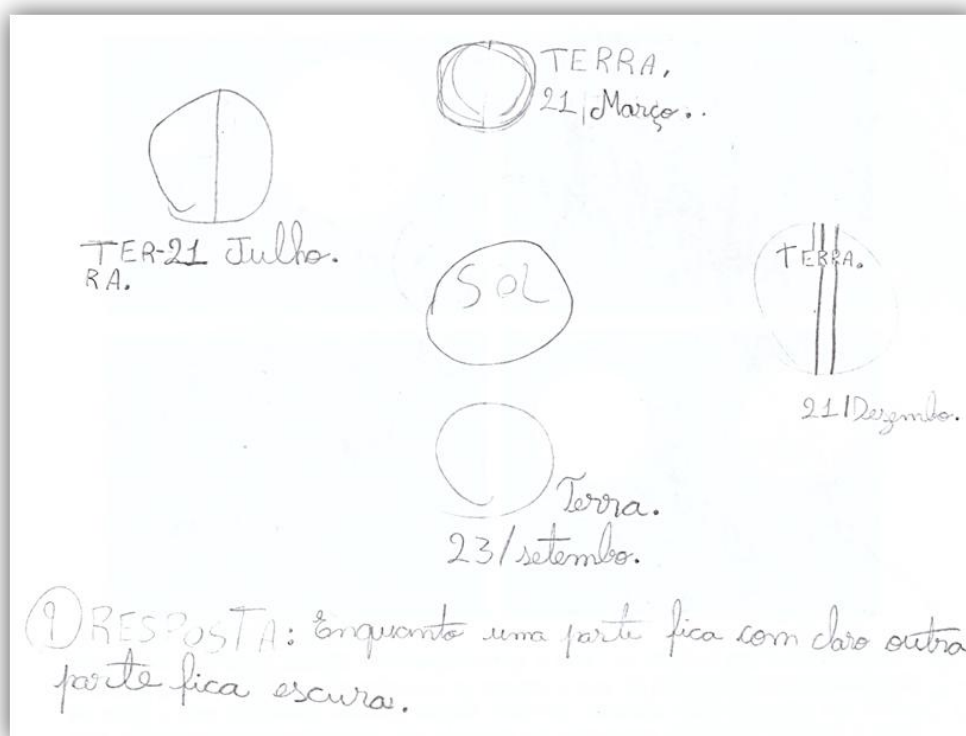 TERRA.
21/Março..
TER-21 Julho.
RA.
SOL
TERRA.
21/Dezembo.
Terra.
23/setembo.
1 RESPOSTA: Enquanto uma parte fica com claro outra
parte fica escura.